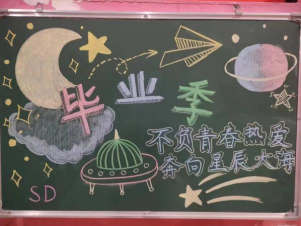 毕业季
不负青春热爱
奔向星辰大海
SD